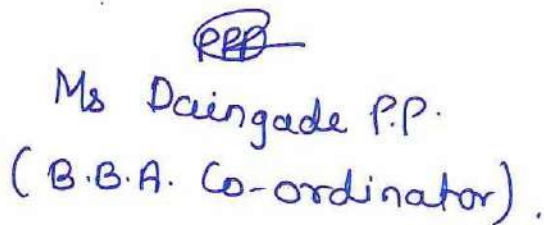 Ms Daingade P.P.
(B.B.A. Co-ordinator).